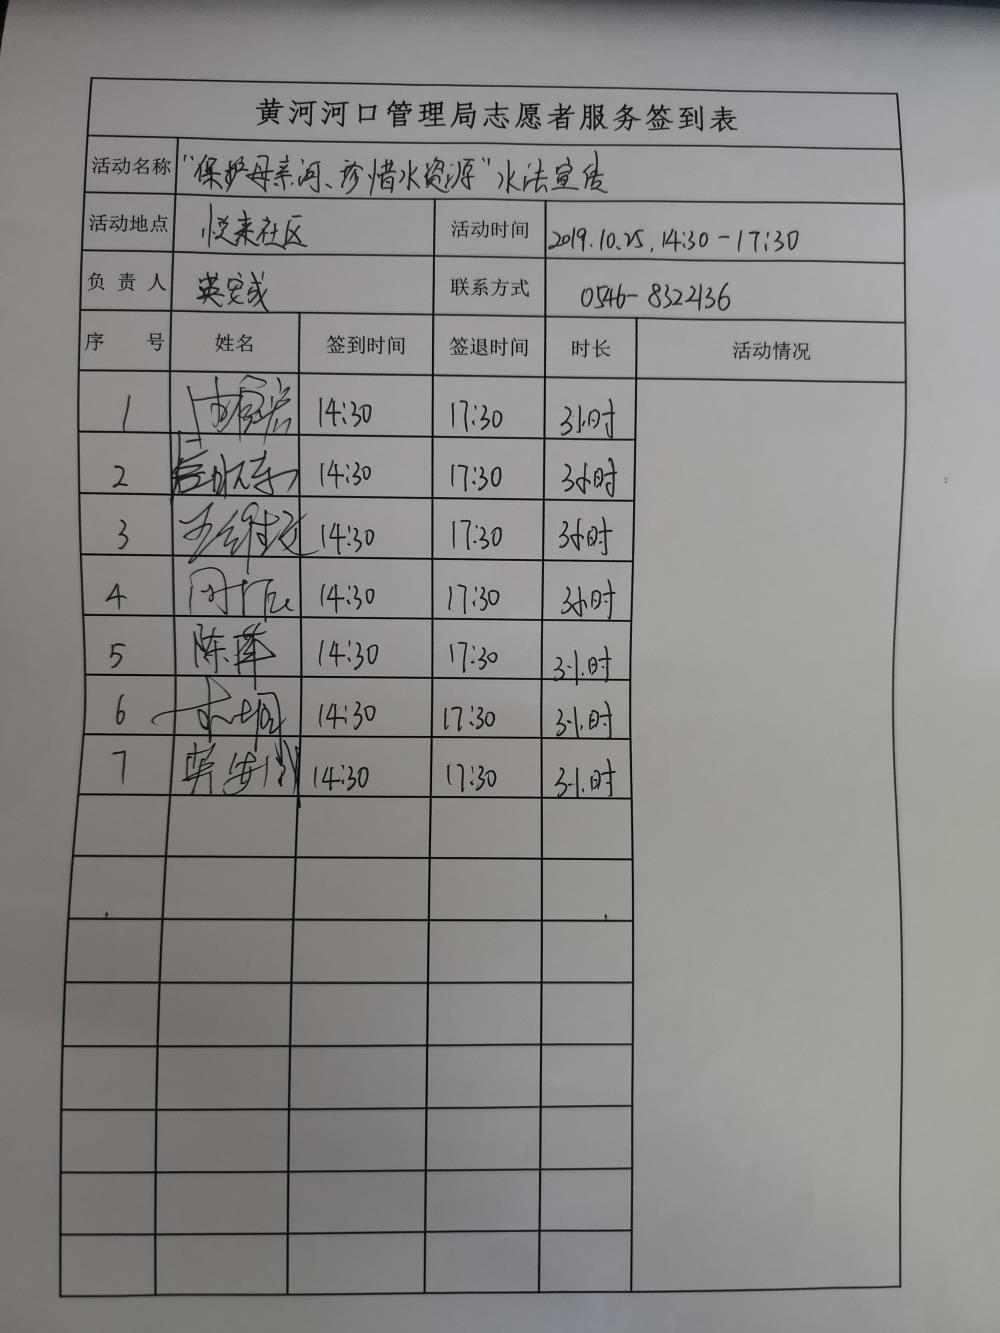 黄河河口管理局志愿者服务签到表
活动名称 "保护母亲河、珍惜水资源"水法宣传
活动地点 悦来社区 活动时间 2019.10.25, 14:30-17:30
负责人 英安成 联系方式 0546-8322136
序号 姓名 签到时间 签退时间 时长 活动情况
1 14:30 17:30 3小时
2 14:30 17:30 3小时
3 14:30 17:30 3小时
4 14:30 17:30 3小时
5 陈萍 14:30 17:30 3小时
6 14:30 17:30 3小时
7 英安成 14:30 17:30 3小时